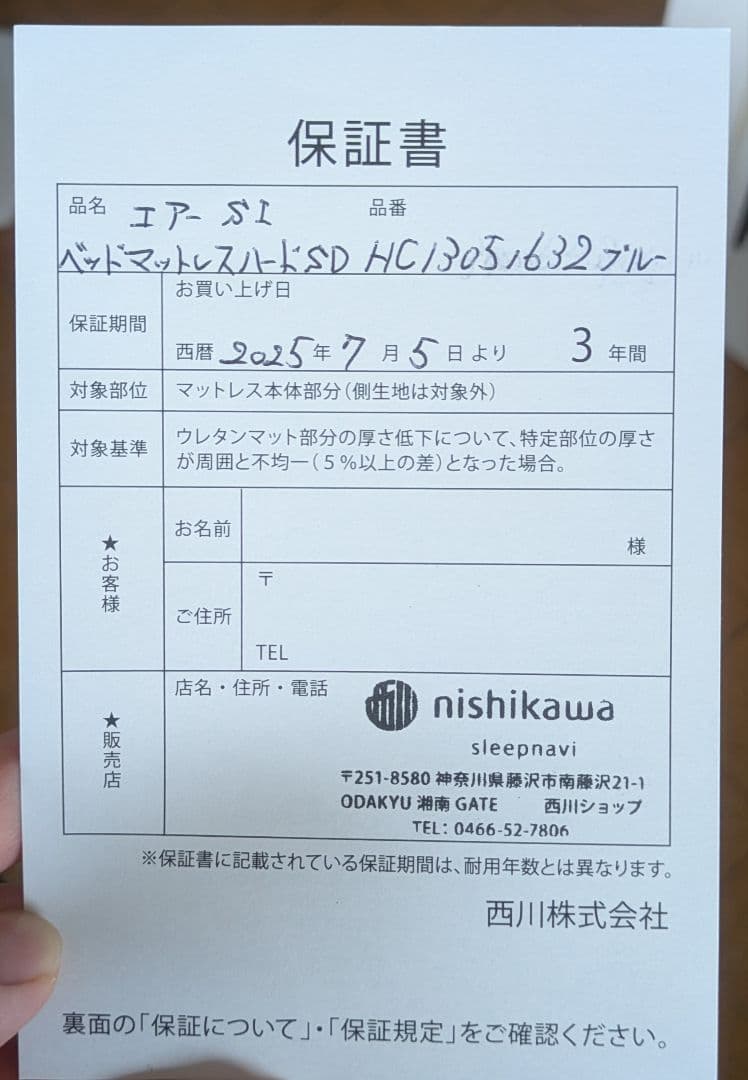 保証書
品名 エアー SI 品番
ベッドマットレスハードSD HC13051632ブルー
保証期間
お買い上げ日
西暦 2025年 7月 5日より 3年間
対象部位 マットレス本体部分（側生地は対象外）
対象基準
ウレタンマット部分の厚さ低下について、特定部位の厚さ
が周囲と不均一（5％以上の差）となった場合。
★お客様
お名前
様
ご住所
〒
TEL
★販売店
店名・住所・電話
nishikawa
sleepnavi
〒251-8580 神奈川県藤沢市南藤沢21-1
ODAKYU 湘南 GATE 西川ショップ
TEL: 0466-52-7806
※保証書に記載されている保証期間は、耐用年数とは異なります。
西川株式会社
裏面の「保証について」・「保証規定」をご確認ください。